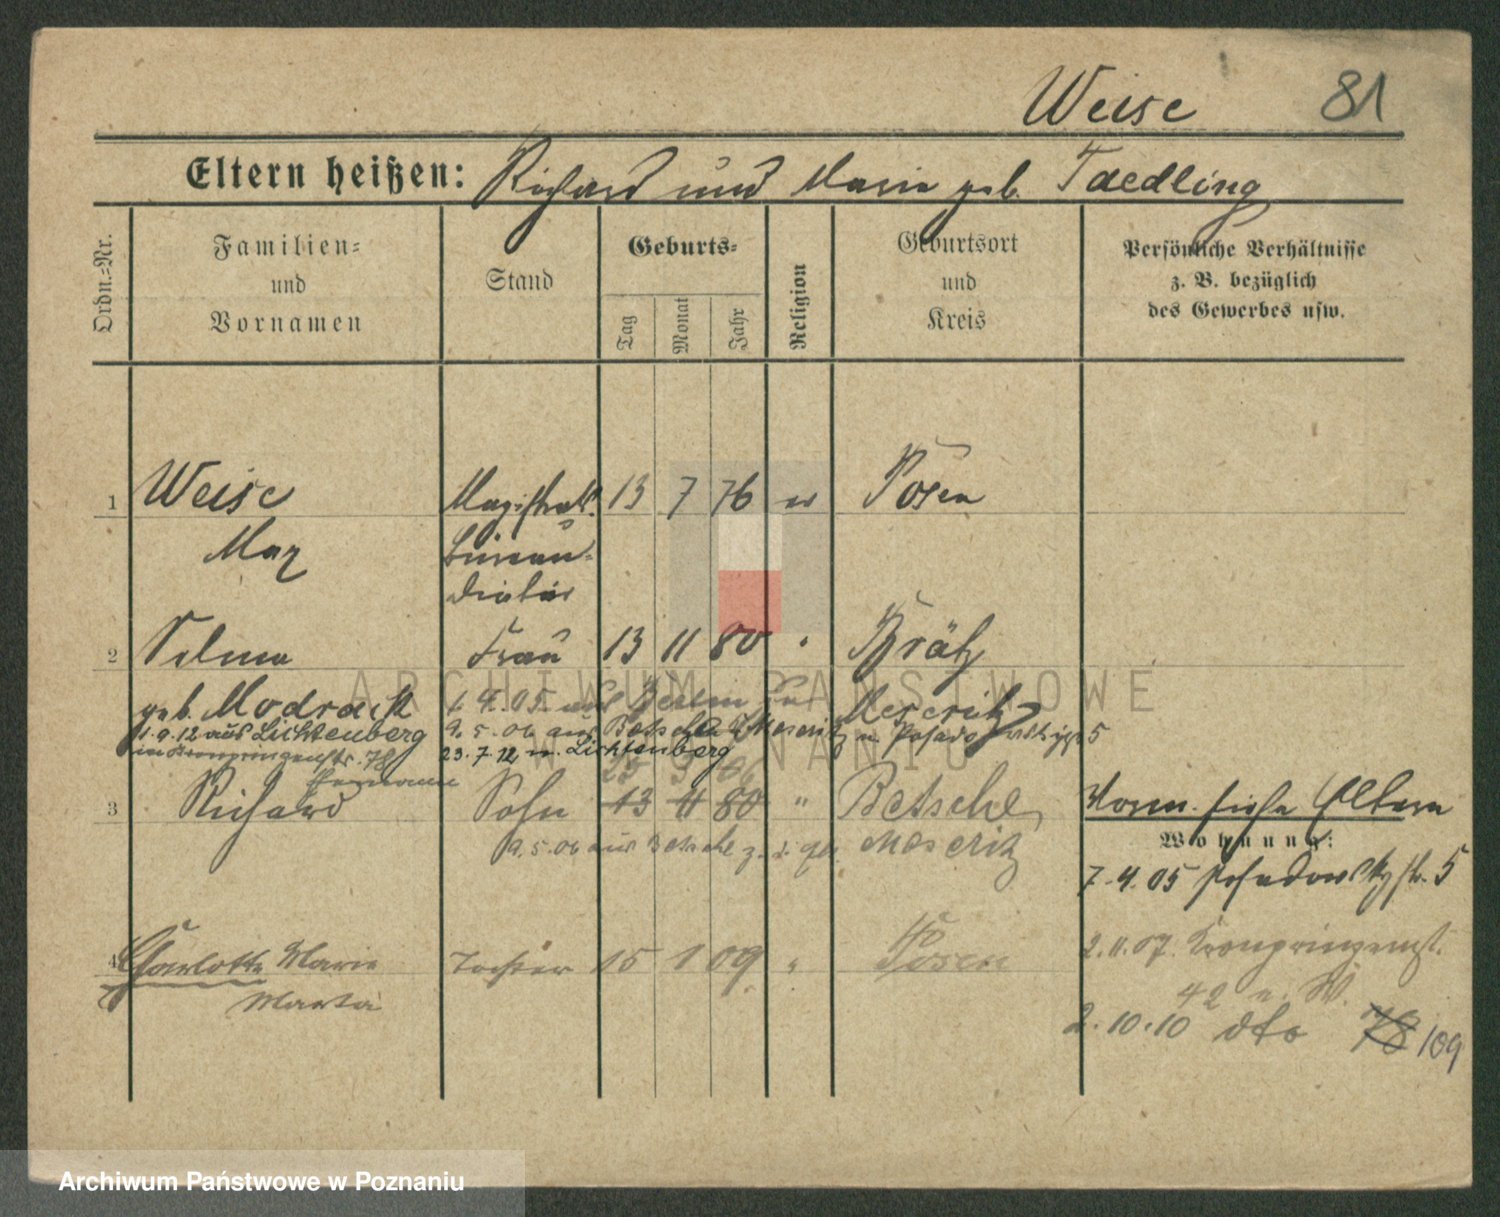 Weise 81
Eltern heißen: Richard und Marie geb. Taedling
Ordn.-Nr.
Familien-
und
Vornamen
Stand
Geburts-
Tag
Monat
Jahr
Religion
Geburtsort
und
Kreis
Persönliche Verhältnisse
z. B. bezüglich
des Gewerbes usw.
1 Weise Magistrats- 13 7 76 ev Posen
Max Bureau-
Diätar
2 Selma Frau 13 11 80 " Brätz
geb. Modrack 1.4.05 auf Berlin Meseritz
1.9.12 aus Lichtenberg 9.5.06 aus Betsche Meseritz n. Posadowskystr 5
in Kronprinzenstr. 78 23.7.12 n. Lichtenberg
Hermann
3 Richard Sohn 13 11 80 " Betsche Vorm. siehe Eltern
Wohnung:
9.5.06 aus Betsche Meseritz
7.4.05 Posadowskystr. 5
4 Charlotte Marie Tochter 15 1 09 " Posen 2.11.07 Kronprinzenst.
Marta 42
2.10.10 dto 78 109
ARCHIWUM PAŃSTWOWE
W POZNANIU
Archiwum Państwowe w Poznaniu